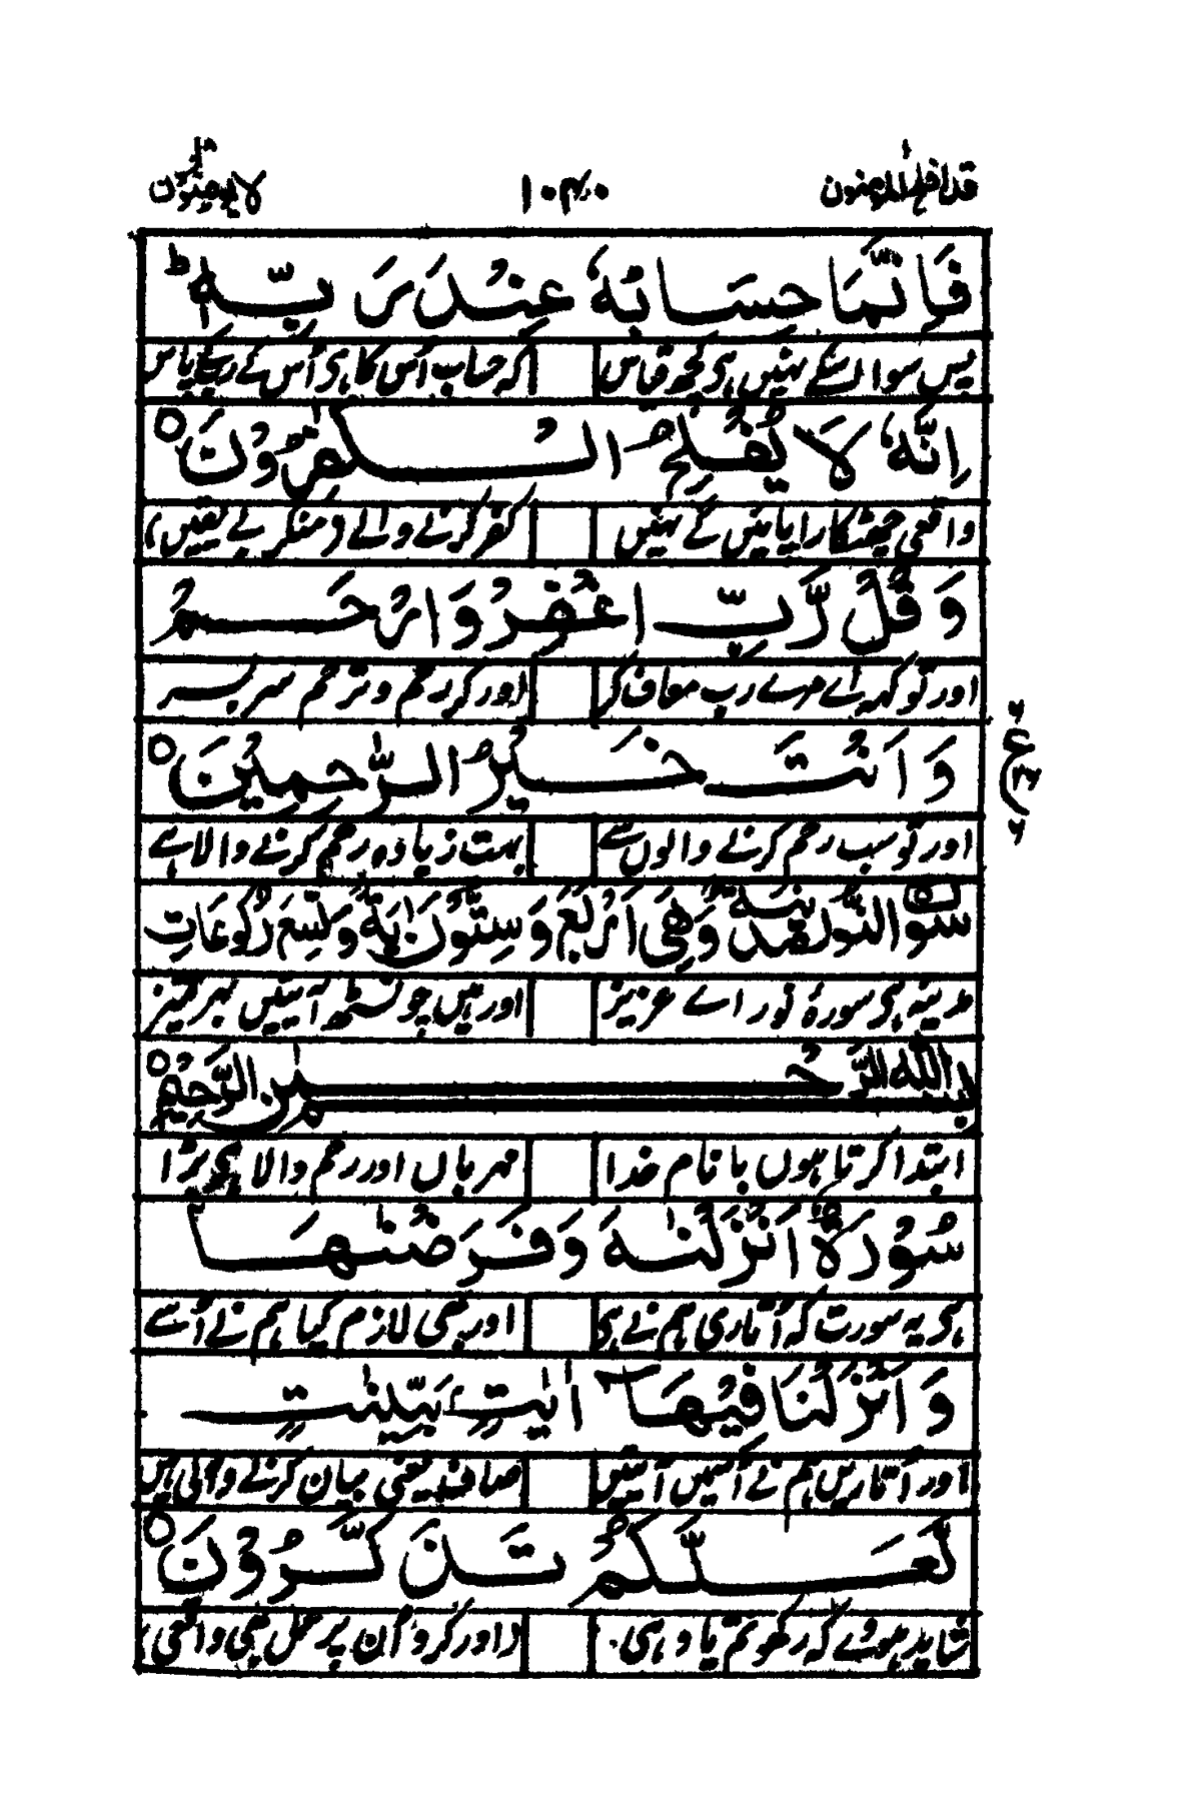 قد افلح المؤمنون ۱۰۴۰ لا یؤمنون
فَاِنَّمَا حِسَابُهٗ عِنْدَ رَبِّهٖ ؕ
پس سوا اسکے نہیں ہی کچھ قیاس کہ حساب اُس کا ہی اُس کے رب کے پاس
اِنَّهٗ لَا يُفْلِحُ الْكٰفِرُوْنَ ○
واقعی چھٹکارا پائیں گے نہیں کفر کرنے والے (منکر بے یقیں)
وَقُلْ رَّبِّ اغْفِرْ وَارْحَمْ
اور تو کہہ اے مرے رب معاف کر اور کر رحم و ترحم سر بسر
وَاَنْتَ خَيْرُ الرّٰحِمِيْنَ ○
اور تو سب رحم کرنے والوں سے بہت زیادہ رحم کرنے والا ہے
ع
سُوْرَةُ النُّوْرِ مَدَنِيَّةٌ وَّهِيَ اَرْبَعٌ وَّسِتُّوْنَ اٰيَةً وَّتِسْعُ رُكُوْعَاتٍ
مدینہ ہی سورۂ نور اے عزیز اور ہیں چونسٹھ آیتیں بہر تمیز
بِسْمِ اللهِ الرَّحْمٰنِ الرَّحِيْمِ ○
ابتدا کرتا ہوں با نام خدا مہرباں اور رحم والا ہی بڑا
سُوْرَةٌ اَنْزَلْنٰهَا وَفَرَضْنٰهَا
ہی یہ سورت کہ اُتاری ہم نے ہی اور بھی لازم کیا ہم نے اُسے
وَاَنْزَلْنَا فِيْهَاۤ اٰيٰتٍۭ بَيِّنٰتٍ
اور اُتاریں ہم نے اُسمیں آیتیں صاف یعنی بیان کرنے والی ہیں
لَّعَلَّكُمْ تَذَكَّرُوْنَ ○
شاید ہووے کہ رکھو تم یاد ہی (اور کرو اُن پر عمل بھی واقعی)